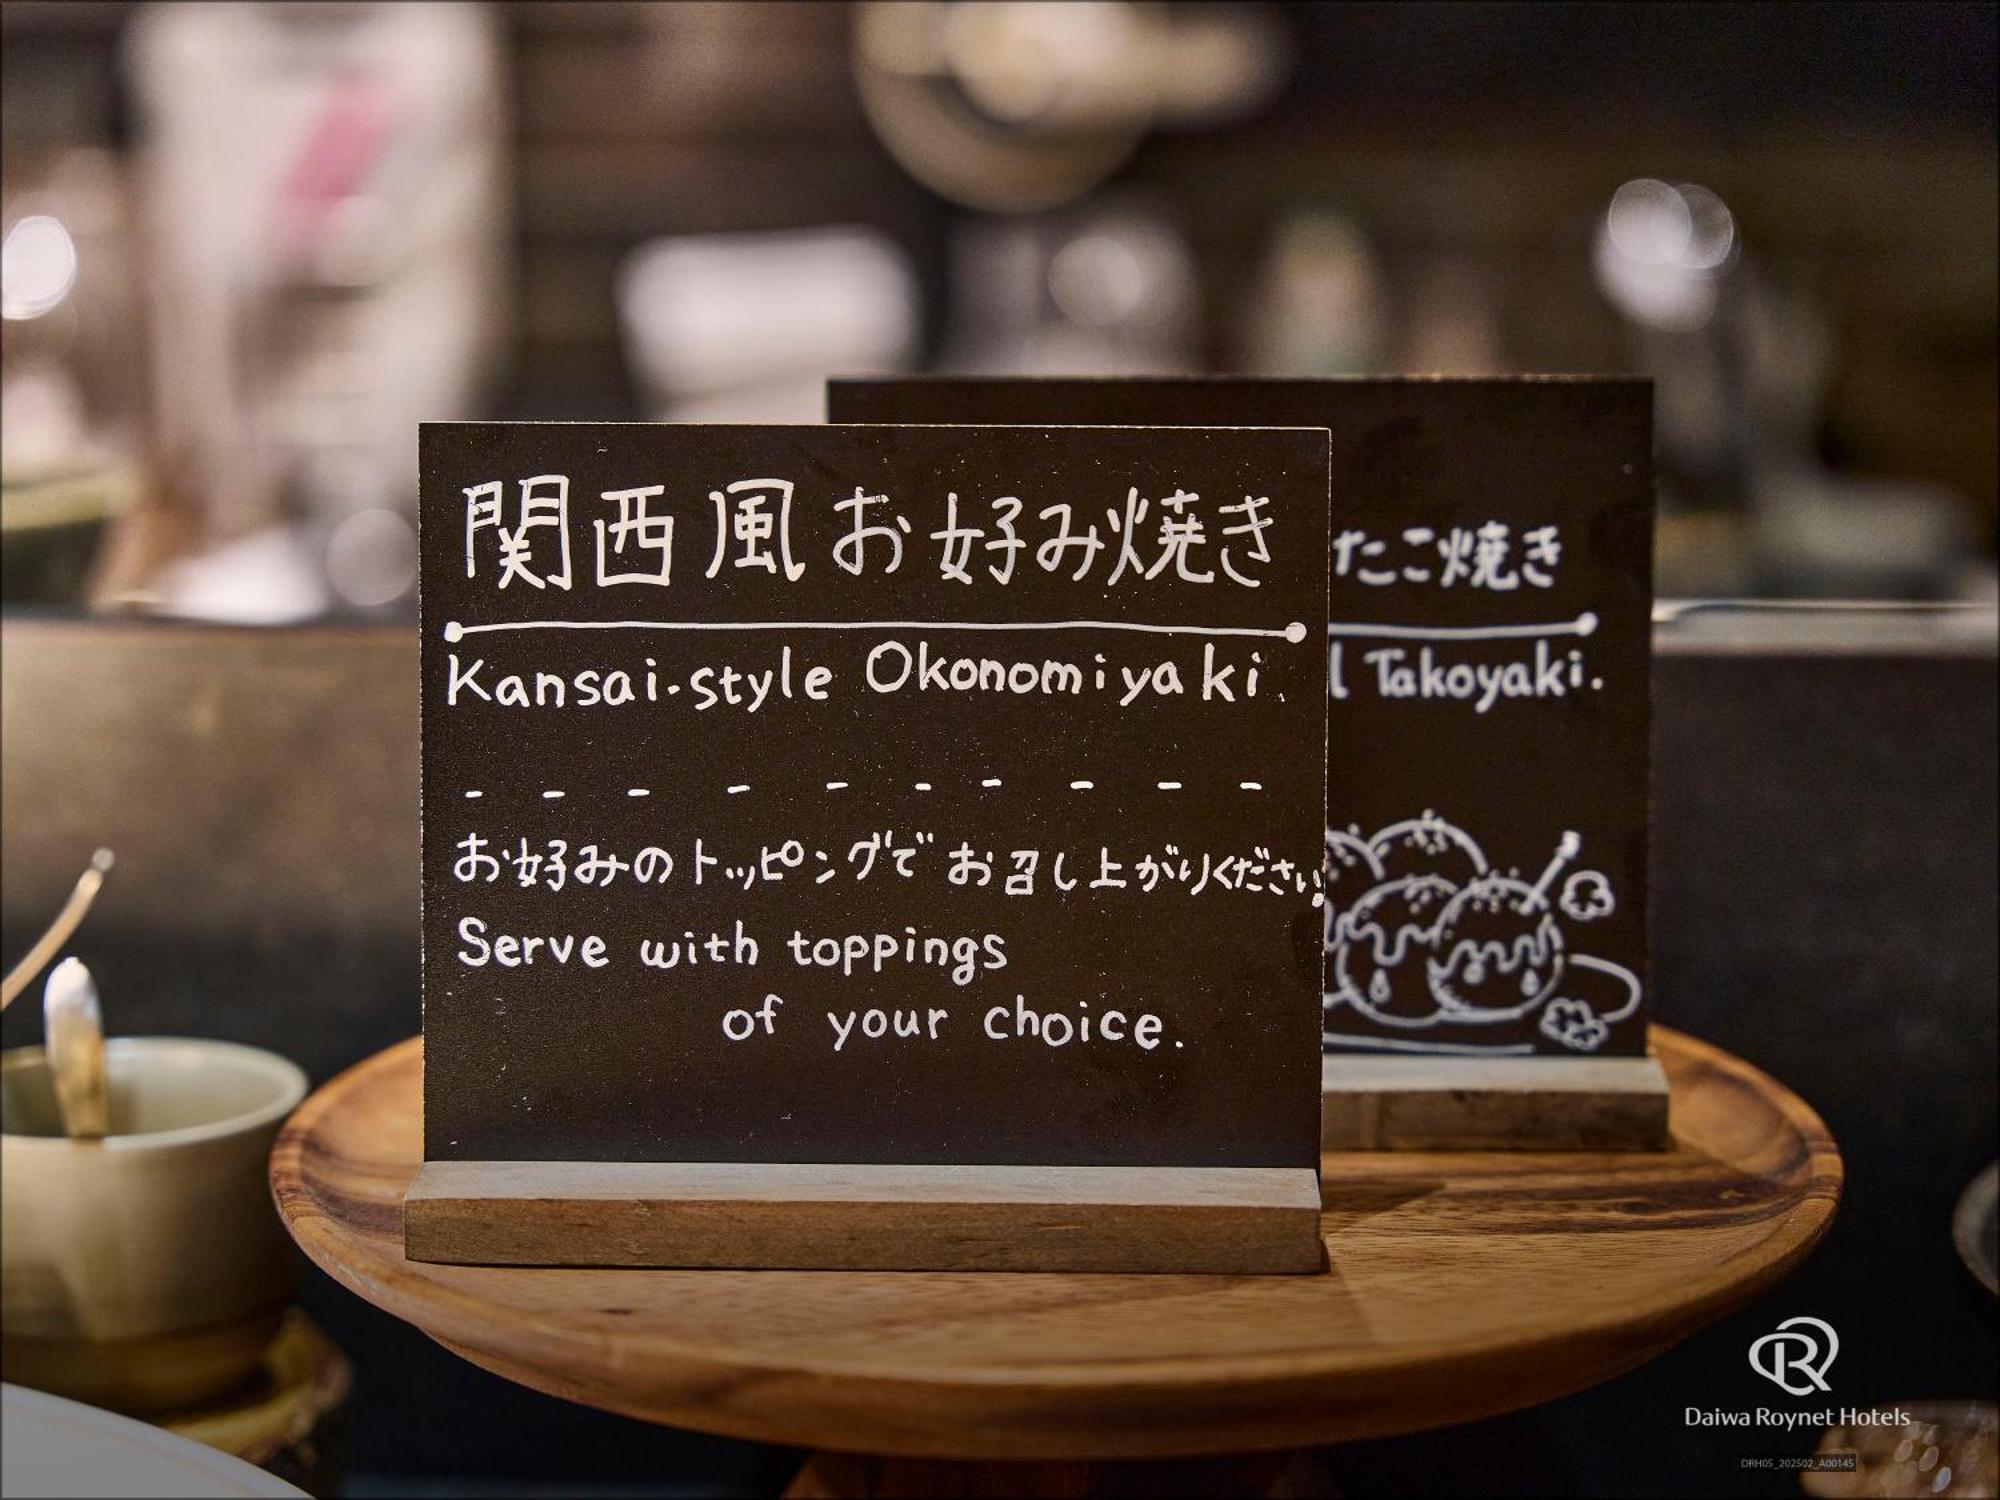 関西風お好み焼き
Kansai-style Okonomiyaki.
お好みのトッピングでお召し上がりください!
Serve with toppings
of your choice.
たこ焼き
l Takoyaki.
Daiwa Roynet Hotels
DRH05_202502_A00145